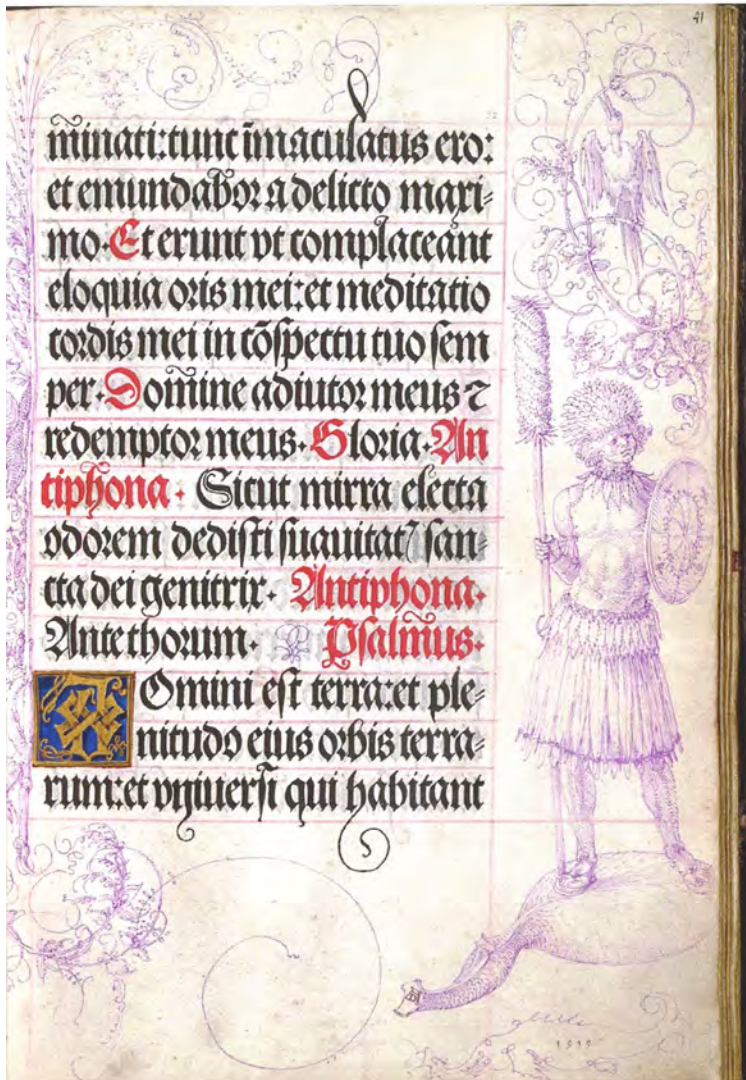 41
m̃inati:tunc ĩmaculatus ero:
et emundabor a delicto maxi⸗
mo. Et erunt vt complaceant
eloquia oris mei:et meditatio
cordis mei in cõspectu tuo sem
per. Domine adiutor meus ⁊
redemptor meus. Gloria. An
tiphona. Sicut mirra electa
odorem dedisti suauitat san⸗
cta dei genitrix. Antiphona.
Ante thorum. Psalmus.
Domini est terra:et ple⸗
nitudo eius orbis terra⸗
rum:et vniuersi qui habitant